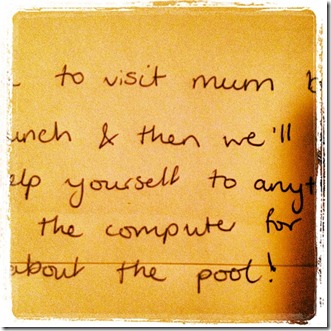 to visit mum
unch & then we'll
elp yourself to anyt
the compute for
about the pool!